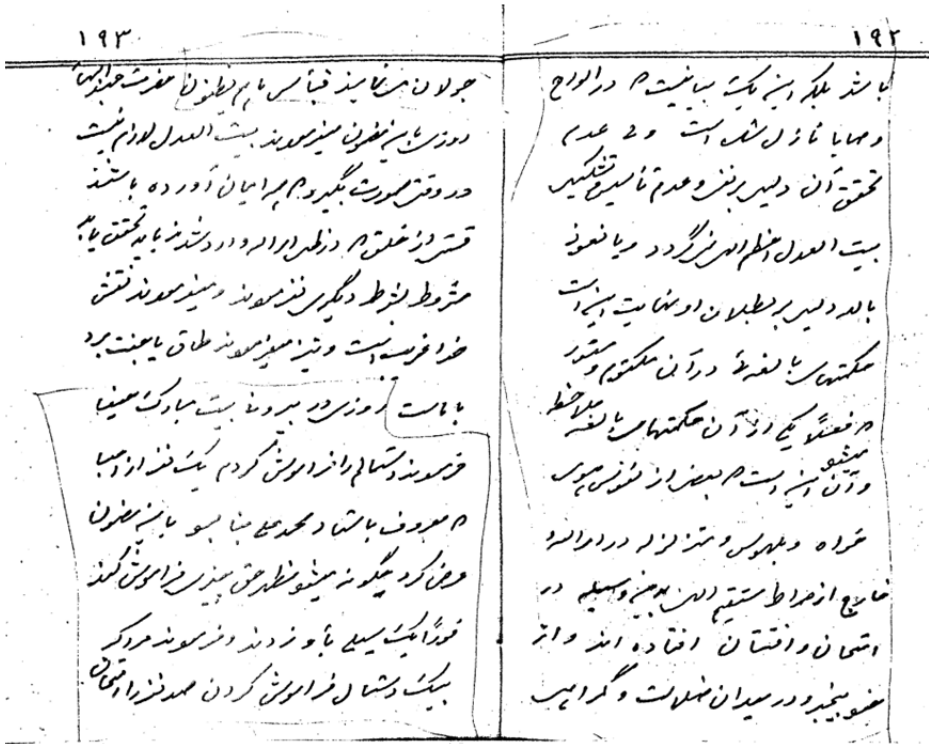 ۱۹۲
باشد بلکه این یک بیانیست که در الواح
وصایا نازل شده است ولی عدم
تحقق آن دلیل بر نقض و عدم تأسیس و تشکیل
بیت العدل اعظم الهی نمیگردد و یا نعوذ
بالله دلیل بر بطلان او نهایت اینست
حکمتهای بالغهٔ در آن مکتوم و مستور
که فعلاً یکی از آن حکمتهای بالغه ملاحظه میشود
و آن این است که بعضی از نفوس
خواه و بلهوس و متزلزله در امرالله
خارج از صراط مستقیم الهی وسیله در
امتحان و افتتان افتاده اند و از
بیخبر و در میدان ضلالت و گمراهی
۱۹۳
جولان مینمایند
روزی باین مضمون میفرمودند بیت العدل لازم نیست
در وقتی صورت بگیرد که همه ایمان آورده باشند
قسمتی از خلق که در ظل امرالله وارد شدند باید تحقق یابد
مشروط بشرط دیگری نفرمودند و میفرمودند نقشش
خدا قریب است و نیز میفرمودند طاق یا جفت برد
با ماست روزی در بیرونی بیت مبارک
فرمودند دستمالم را فراموش کردم یک نفر از احبا
که معروف باستاد محمد علی بنا بود باین مضمون
عرض کرد چگونه میشود مظهر حق چیزی فراموش کند
فوراً یک سیلی باو زدند و فرمودند مردکه
بیک دستمال فراموش کردن صد نفر را امتحان